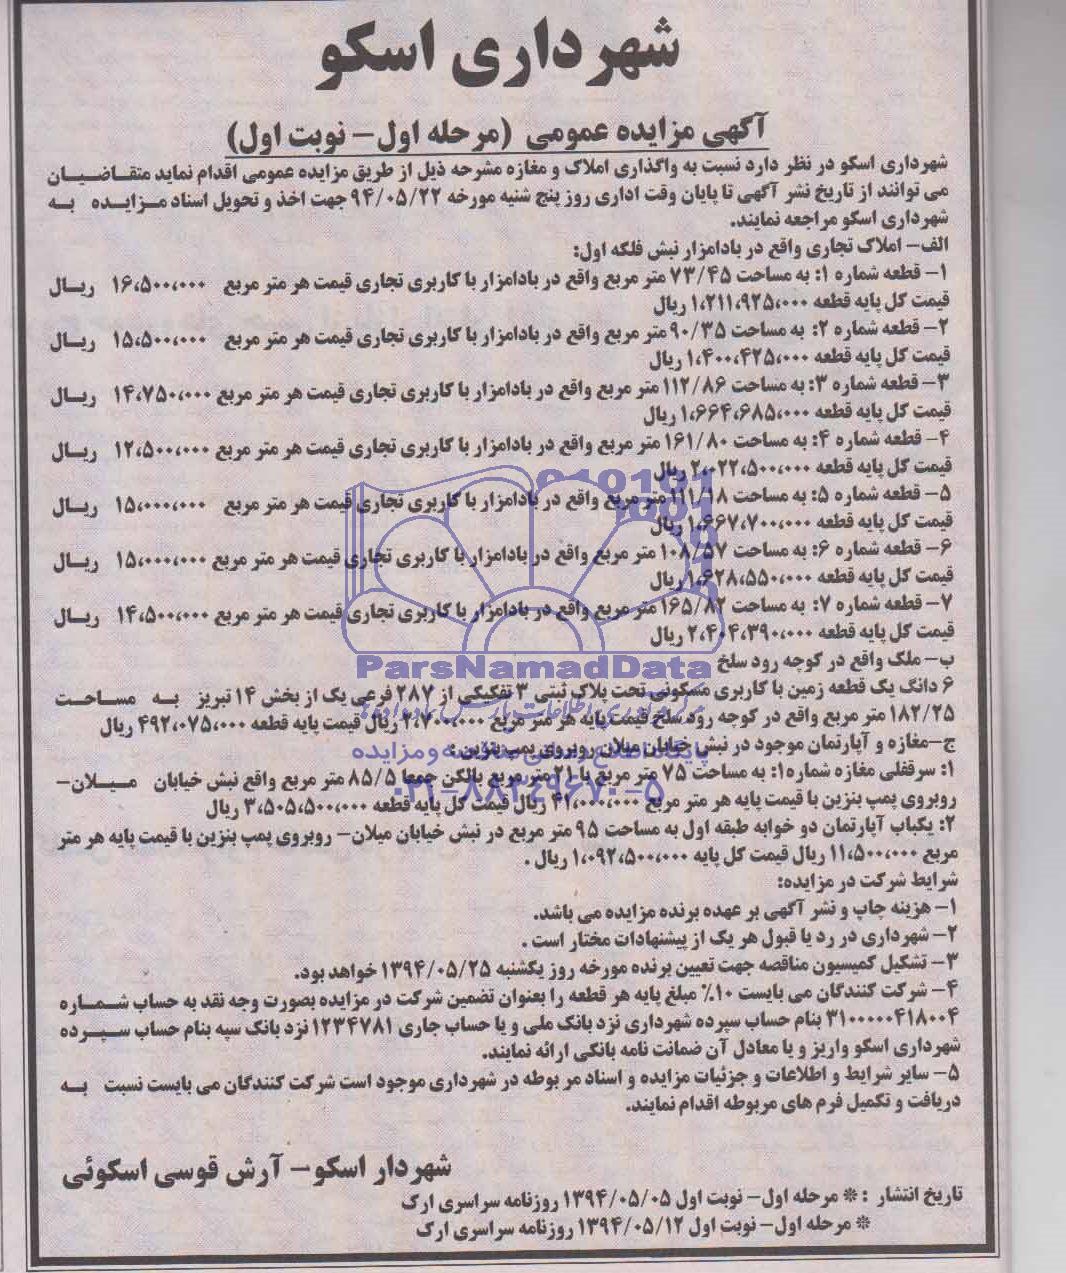 شهرداری اسکو
آگهی مزایده عمومی (مرحله اول – نوبت اول)
شهرداری اسکو در نظر دارد نسبت به واگذاری املاک و مغازه مشرحه ذیل از طریق مزایده عمومی اقدام نماید متقـاضـیـان
می توانند از تاریخ نشر آگهی تا پایان وقت اداری روز پنج شنبه مورخه ۹۴/۰۵/۲۲ جهت اخذ و تحویل اسناد مـزایـده به
شهرداری اسکو مراجعه نمایند.
الف– املاک تجاری واقع در بادامزار نبش فلکه اول:
۱– قطعه شماره ۱: به مساحت ۷۳/۴۵ متر مربع واقع در بادامزار با کاربری تجاری قیمت هر متر مربع ۱۶،۵۰۰،۰۰۰ ریـال
قیمت کل پایه قطعه ۱،۲۱۱،۹۲۵،۰۰۰ ریال
۲– قطعه شماره ۲: به مساحت ۹۰/۳۵ متر مربع واقع در بادامزار با کاربری تجاری قیمت هر متر مربع ۱۵،۵۰۰،۰۰۰ ریـال
قیمت کل پایه قطعه ۱،۴۰۰،۴۲۵،۰۰۰ ریال
۳– قطعه شماره ۳: به مساحت ۱۱۲/۸۶ متر مربع واقع در بادامزار با کاربری تجاری قیمت هر متر مربع ۱۴،۷۵۰،۰۰۰ ریـال
قیمت کل پایه قطعه ۱،۶۶۴،۶۸۵،۰۰۰ ریال
۴– قطعه شماره ۴: به مساحت ۱۶۱/۸۰ متر مربع واقع در بادامزار با کاربری تجاری قیمت هر متر مربع ۱۲،۵۰۰،۰۰۰ ریـال
قیمت کل پایه قطعه ۲،۰۲۲،۵۰۰،۰۰۰ ریال
۵– قطعه شماره ۵: به مساحت ۱۱۱/۱۸ متر مربع واقع در بادامزار با کاربری تجاری قیمت هر متر مربع ۱۵،۰۰۰،۰۰۰ ریـال
قیمت کل پایه قطعه ۱،۶۶۷،۷۰۰،۰۰۰ ریال
۶– قطعه شماره ۶: به مساحت ۱۰۸/۵۷ متر مربع واقع در بادامزار با کاربری تجاری قیمت هر متر مربع ۱۵،۰۰۰،۰۰۰ ریـال
قیمت کل پایه قطعه ۱،۶۲۸،۵۵۰،۰۰۰ ریال
۷– قطعه شماره ۷: به مساحت ۱۶۵/۸۲ متر مربع واقع در بادامزار با کاربری تجاری قیمت هر متر مربع ۱۴،۵۰۰،۰۰۰ ریـال
قیمت کل پایه قطعه ۲،۴۰۴،۳۹۰،۰۰۰ ریال
ب– ملک واقع در کوچه رود سلخ
ParsNamadData
۶ دانگ یک قطعه زمین با کاربری مسکونی تحت پلاک ثبتی ۳ تفکیکی از ۲۸۷ فرعی یک از بخش ۱۴ تبریز به مسـاحـت
۱۸۲/۲۵ متر مربع واقع در کوچه رود سلخ قیمت پایه هر متر مربع ۲،۷۰۰،۰۰۰ ریال قیمت پایه قطعه ۴۹۲،۰۷۵،۰۰۰ ریال
ج–مغازه و آپارتمان موجود در نبش خیابان میلان روبروی پمپ بنزین :
۱: سرقفلی مغازه شماره۱: به مساحت ۷۵ متر مربع با ۲۱ متر مربع بالکن جمعا ۸۵/۵ متر مربع واقع نبش خیابان مـیـلان–
۰۲۱–۸۸۳۴۹۶۷۰–۵
روبروی پمپ بنزین با قیمت پایه هر متر مربع ۴۱،۰۰۰،۰۰۰ ریال قیمت کل پایه قطعه ۳،۵۰۵،۵۰۰،۰۰۰ ریال
۲: یکباب آپارتمان دو خوابه طبقه اول به مساحت ۹۵ متر مربع در نبش خیابان میلان– روبروی پمپ بنزین با قیمت پایه هر متر
مربع ۱۱،۵۰۰،۰۰۰ ریال قیمت کل پایه ۱،۰۹۲،۵۰۰،۰۰۰ ریال .
شرایط شرکت در مزایده:
۱– هزینه چاپ و نشر آگهی بر عهده برنده مزایده می باشد.
۲– شهرداری در رد یا قبول هر یک از پیشنهادات مختار است .
۳– تشکیل کمیسیون مناقصه جهت تعیین برنده مورخه روز یکشنبه ۱۳۹۴/۰۵/۲۵ خواهد بود.
۴– شرکت کنندگان می بایست ۱۰٪ مبلغ پایه هر قطعه را بعنوان تضمین شرکت در مزایده بصورت وجه نقد به حساب شـمـاره
۳۱۰۰۰۰۰۴۱۸۰۰۴ بنام حساب سپرده شهرداری نزد بانک ملی و یا حساب جاری ۱۲۳۴۷۸۱ نزد بانک سپه بنام حساب سـپـرده
شهرداری اسکو واریز و یا معادل آن ضمانت نامه بانکی ارائه نمایند.
۵– سایر شرایط و اطلاعات و جزئیات مزایده و اسناد مربوطه در شهرداری موجود است شرکت کنندگان می بایست نسبت به
دریافت و تکمیل فرم های مربوطه اقدام نمایند.
شهردار اسکو – آرش قوسی اسکوئی
تاریخ انتشار : * مرحله اول– نوبت اول ۱۳۹۴/۰۵/۰۵ روزنامه سراسری ارک
* مرحله اول– نوبت اول ۱۳۹۴/۰۵/۱۲ روزنامه سراسری ارک